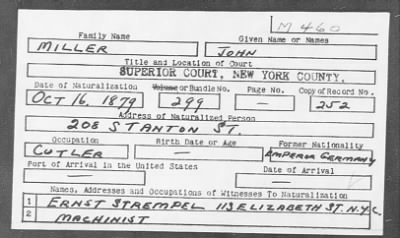 M 460
Family Name Given Name or Names
MILLER JOHN
Title and Location of Court
SUPERIOR COURT, NEW YORK COUNTY.
Date of Naturalization Volume or Bundle No. Page No. Copy of Record No.
OCT 16, 1879 299 — 252
Address of Naturalized Person
208 STANTON ST.
Occupation Birth Date or Age Former Nationality
CUTLER — EMPEROR GERMANY
Port of Arrival in the United States Date of Arrival
— —
Names, Addresses and Occupations of Witnesses To Naturalization
1 ERNST STREMPEL 113 ELIZABETH ST. N.Y.C.
2 MACHINIST